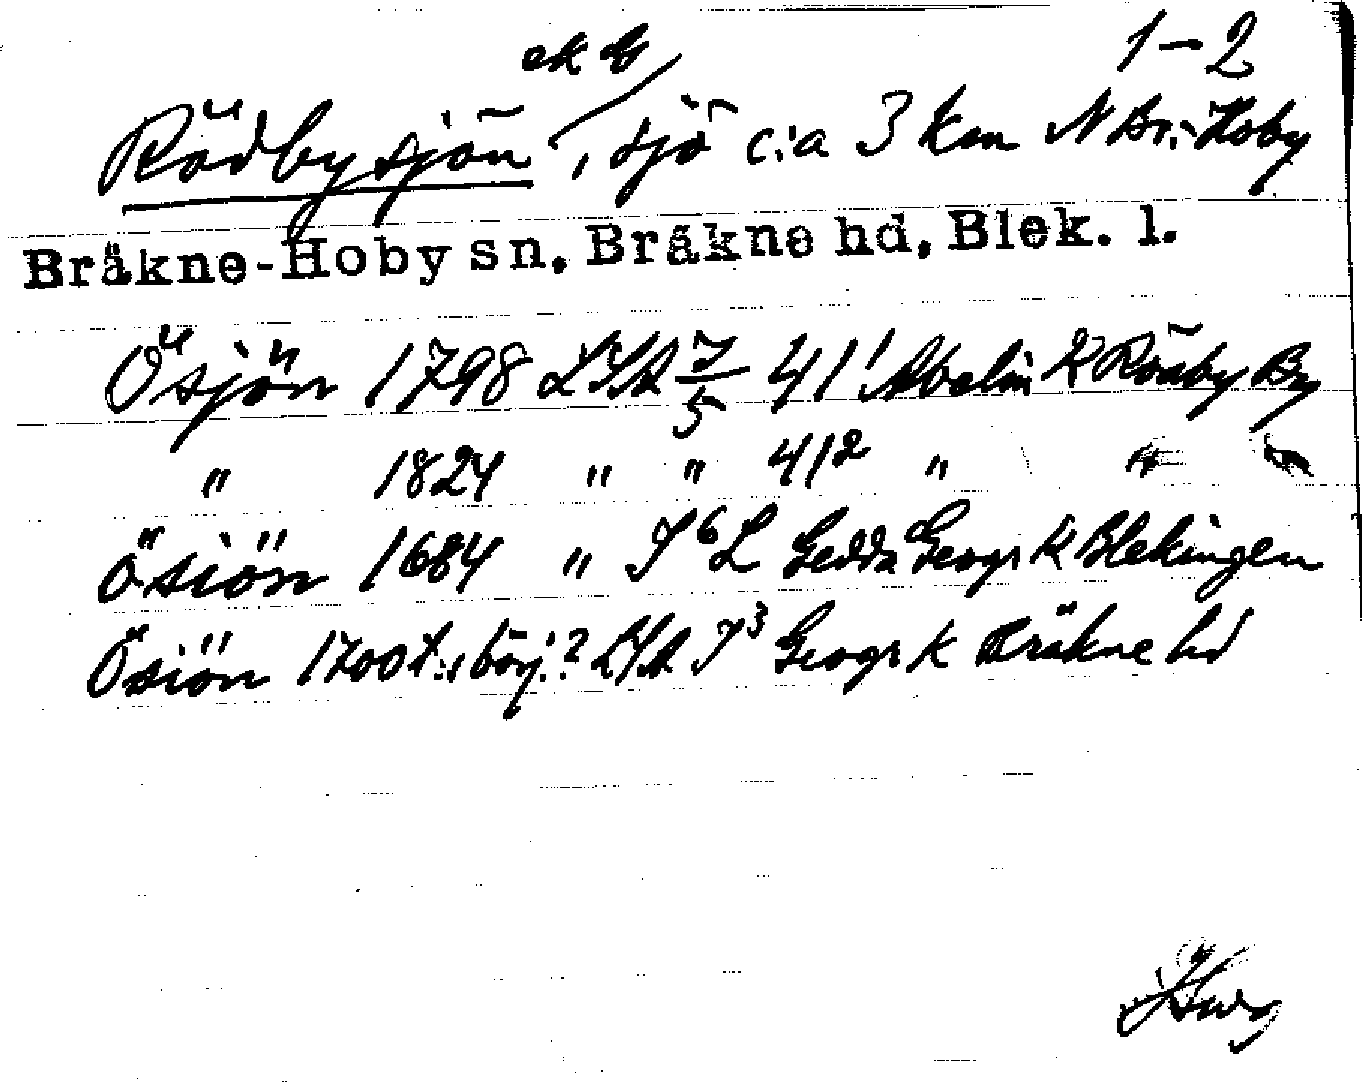 ek G 1-2
Rödbysjön, sjö c:a 3 km N Br.-Hoby
Bräkne-Hoby sn. Bräkne hd, Blek. l.
Ösjön 1798 LSA 7/5 41¹ Abelin K Rödby By
" 1824 " " 41² " "
Ösiön 1684 " I⁶ L Gedda Geogr K Blekingen
Ösiön 1700 t., börj.? LSA I³ Geogr K Bräkne hd